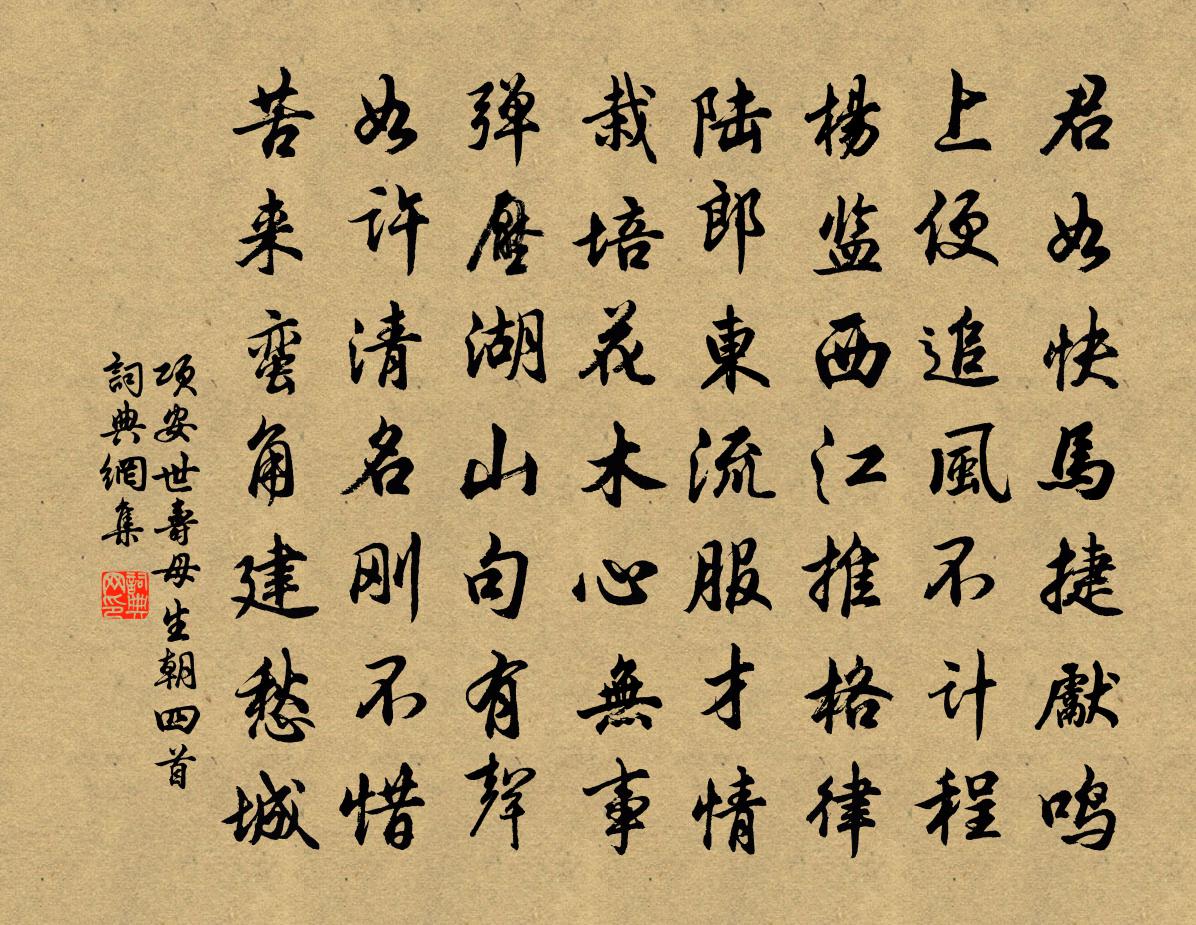 君如快馬捷獻鳴
上便追風不计程
楊监西江推格律
陆郎東流服才情
栽培花木心無事
弹壓湖山句有聲
如许清名刚不惜
苦来蛮角建愁城
项安世壽母生朝四首
詞典網集
詞典网印